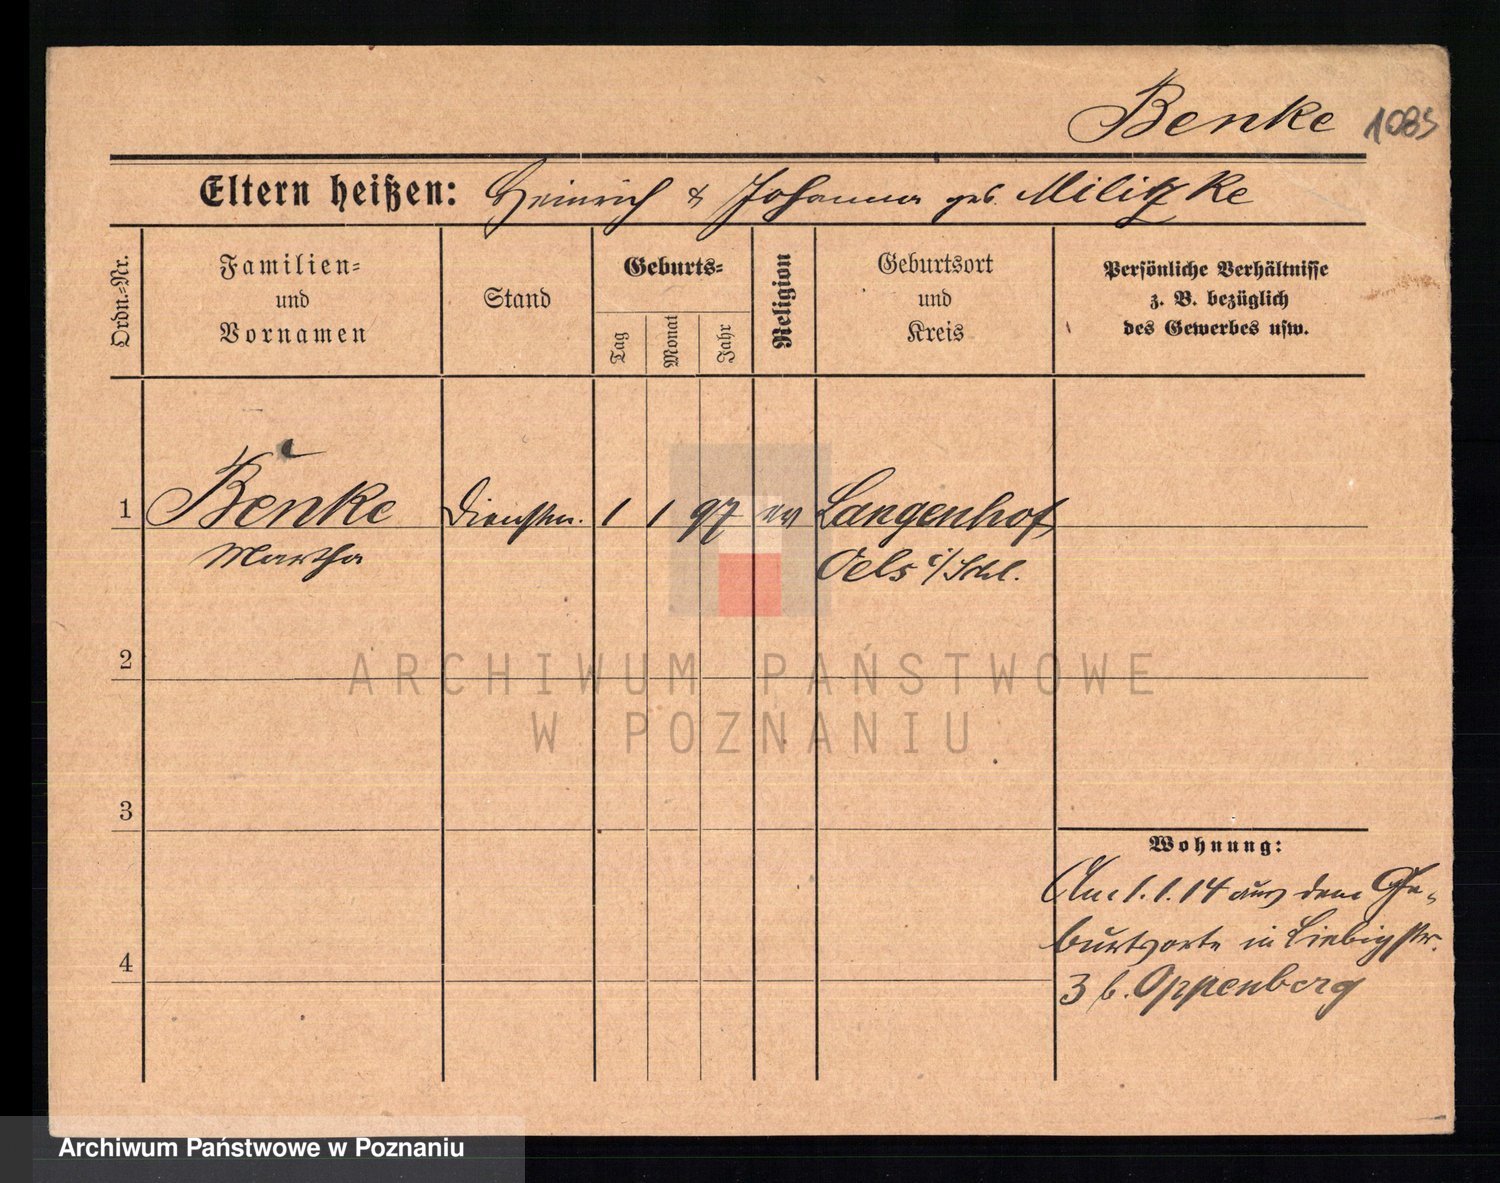 Benke 1085
Eltern heißen: Heinrich & Johanna geb. Militzke
Ordn.-Nr.
Familien-
und
Vornamen
Stand
Geburts-
Tag
Monat
Jahr
Religion
Geburtsort
und
Kreis
Persönliche Verhältnisse
z. B. bezüglich
des Gewerbes usw.
1 Benke Dienstm. 1 1 97 ev Langenhof
Martha Oels i/Schl.
2
ARCHIWUM PAŃSTWOWE
W POZNANIU
3
Wohnung:
Am 1.1.14 aus dem Ge-
burtsorte in Liebigstr.
4
3 b. Oppenberg
Archiwum Państwowe w Poznaniu